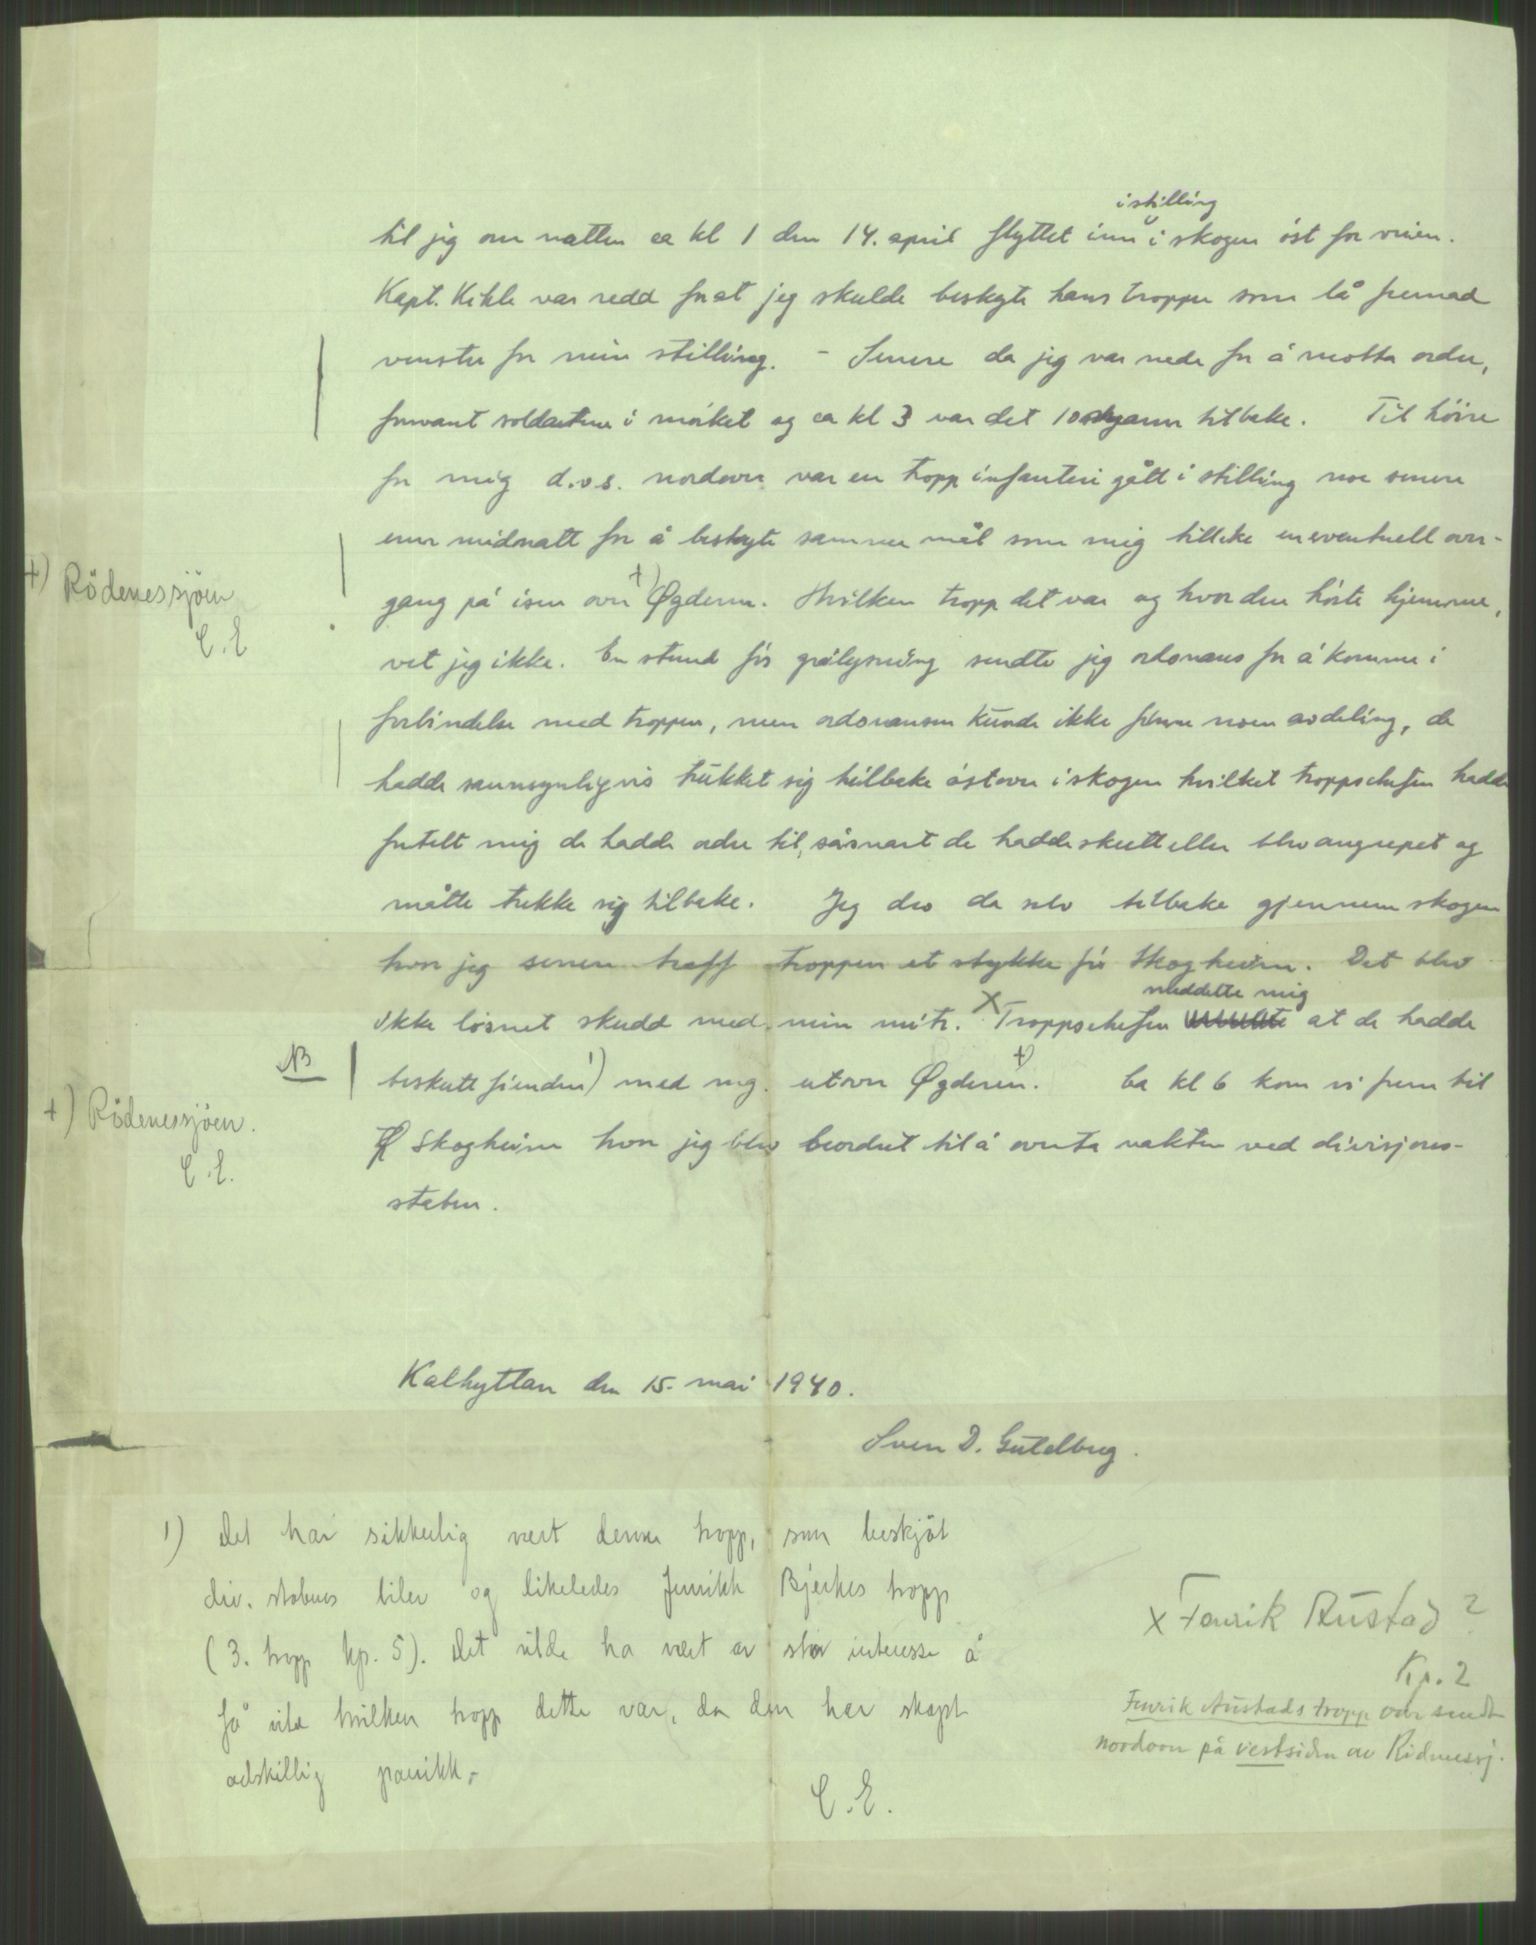 i stilling
til jeg om natten ca kl 1 den 14. april flyttet inn i skogen öst for veien.
Kapt. Kehle var redd for at jeg skulde beskyte hans tropper som lå fremad
venstre for min stilling. – Senere da jeg var nede for å motta ordre,
forsvant soldatene i mörket og ca kl 3 var det 10 tilbake. Til höire
for mig d.v.s. nordover var en tropp infanteri gått i stilling noe senere
enn midnatt for å beskyte samme mål som mig tillike en eventuell over-
gang på isen over +) Øgderen. Hvilken tropp det var og hvor den hörte hjemme,
+) Rödenessjöen
C.E
vet jeg ikke. En stund för grålysning sendte jeg ordonans for å komme i
forbindelse med troppen, men ordonansen kunde ikke finne noen avdeling, de
hadde sannsynligvis trukket sig tilbake östover i skogen hvilket troppschefen hadde
fortalt mig de hadde ordre til, såsnart de hadde skutt eller blev angrepet og
måtte trekke sig tilbake. Jeg dro da selv tilbake gjennem skogen
hvor jeg senere traff troppen et stykke för Skogheim. Det blev
meddelte mig
ikke lösnet skudd med min mitr. X Troppschefen at de hadde
NB
beskutt fienden 1) med mg. utover Øgderen +). Ca kl 6 kom vi frem til
+) Rödenessjöen.
C.E.
Skogheim hvor jeg blev beordret til å overta vakten ved divisjons-
staben.
Kalhyttan den 15. mai 1940.
Sven D. Guldberg.
1) Det har sikkerlig vært denne tropp, som beskjöt
div. stabens biler og likeledes fenrikk Bjerkes tropp
(3. tropp kp. 5). Det vilde ha vært av stor interesse å
få vite hvilken tropp dette var, da den har skapt
adskillig panikk.
C.E.
X Fenrik Austad ?
Kp. 2
Fenrik Austads tropp var sendt
nordover på vestsiden av Rödnessj.